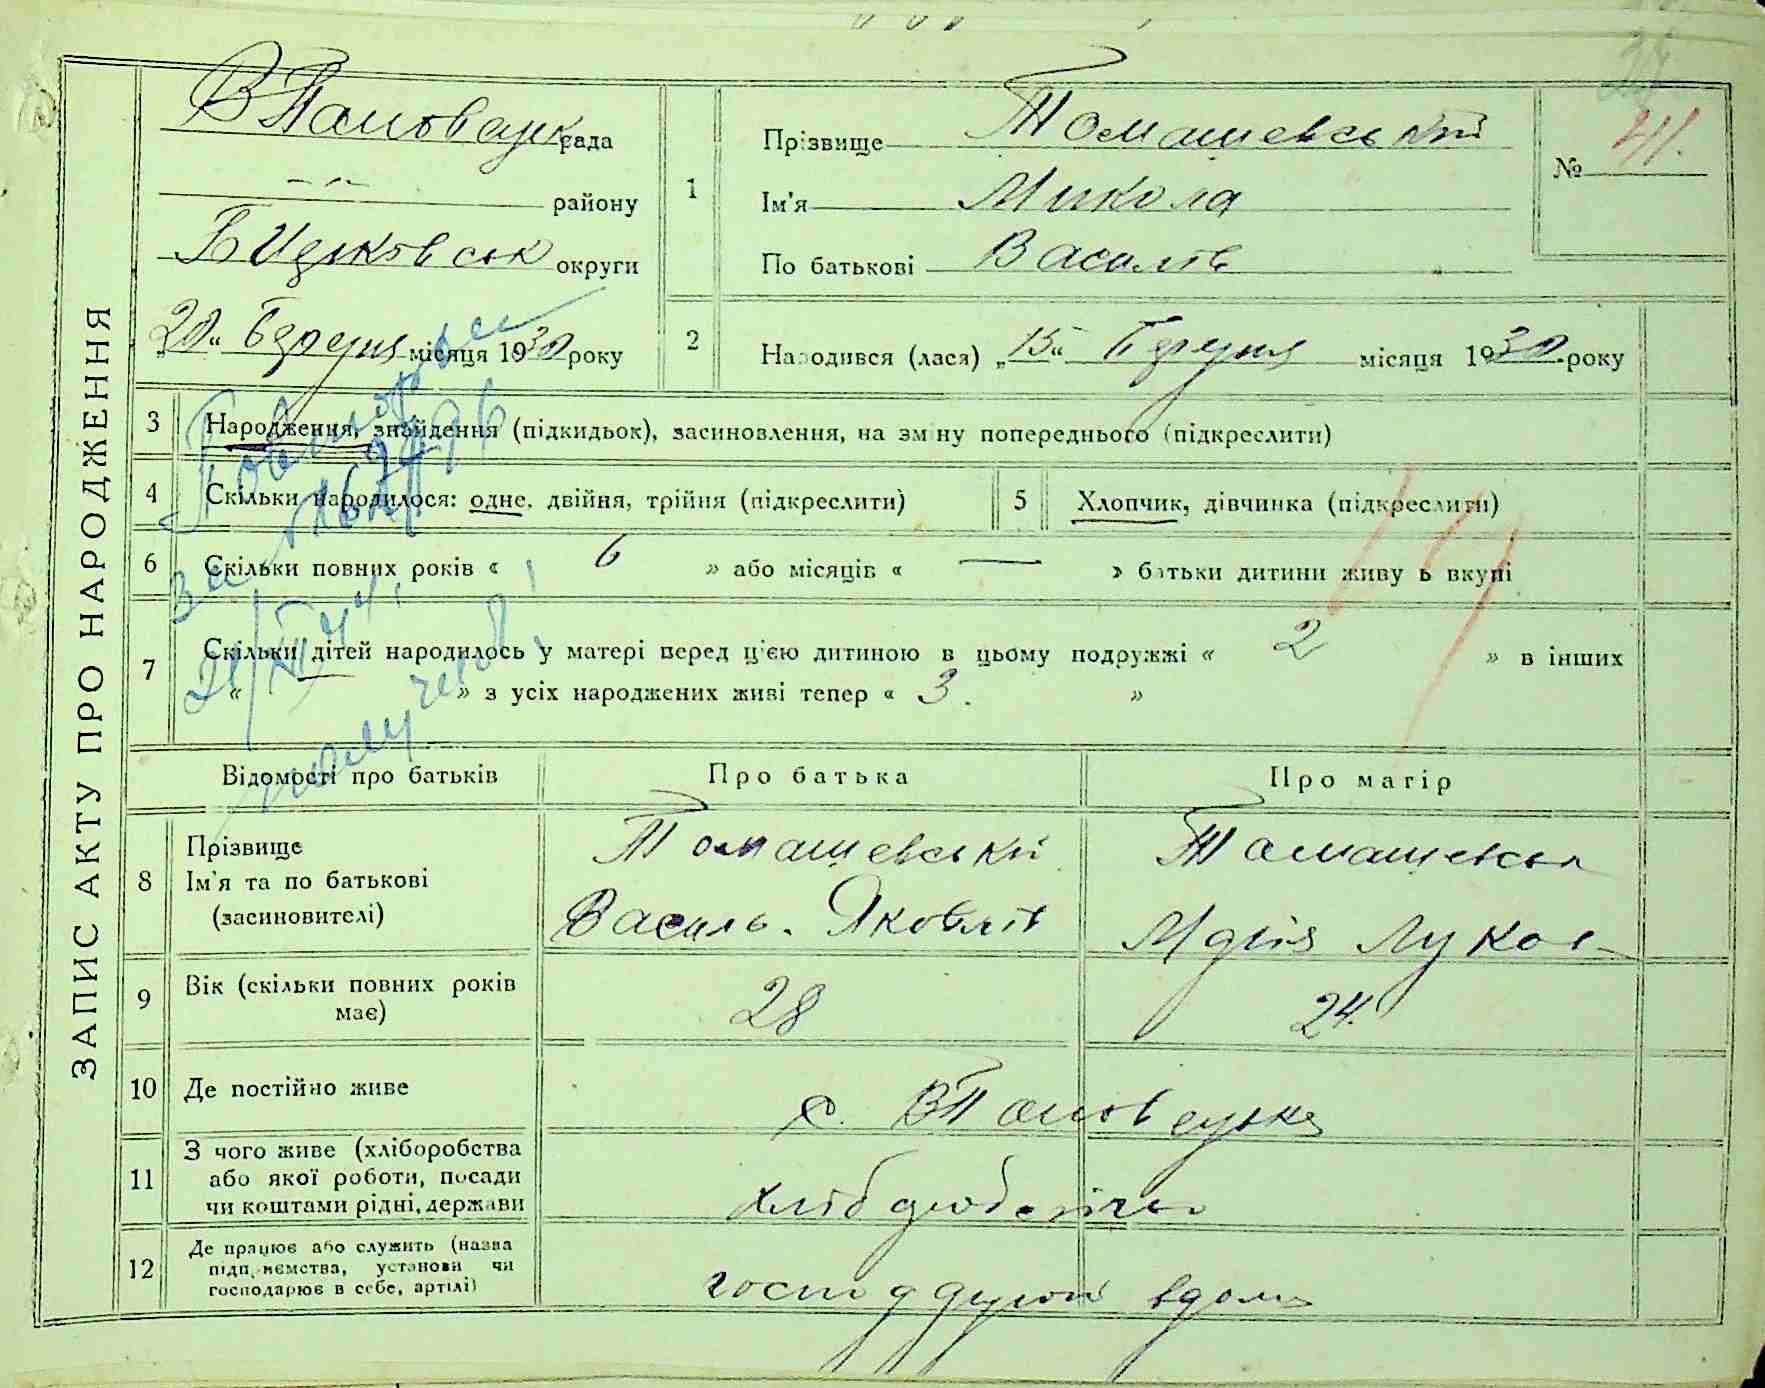 ЗАПИС АКТУ ПРО НАРОДЖЕННЯ
рада
району
округи
„20“ березня місяця 1930 року
1
Прізвище Томашевський
Ім'я Микола
По батькові Василів
№ 41.
2
Народився (лася) „15“ березня місяця 1930 року
3 Народження, знайдення (підкидьок), засиновлення, на зміну попереднього (підкреслити)
4 Скільки народилося: одне, двійня, трійня (підкреслити)
5 Хлопчик, дівчинка (підкреслити)
6 Скільки повних років « 6 » або місяців « — » батьки дитини живуть вкупі
7 Скільки дітей народилось у матері перед ц'єю дитиною в цьому подружжі « 2 » в інших
« — » з усіх народжених живі тепер « 3. »
Відомості про батьків
Про батька
Про матір
8 Прізвище
Ім'я та по батькові
(засиновителі)
Томашевський
Василь. Яковлів
Томашевська
Марія Луков
9 Вік (скільки повних років
має)
28
24.
10 Де постійно живе
с.
11 З чого живе (хліборобства
або якої роботи, посади
чи коштами рідні, держави
12 Де працює або служить (назва
підприємства, установи чи
господарює в себе, артілі)
вдома